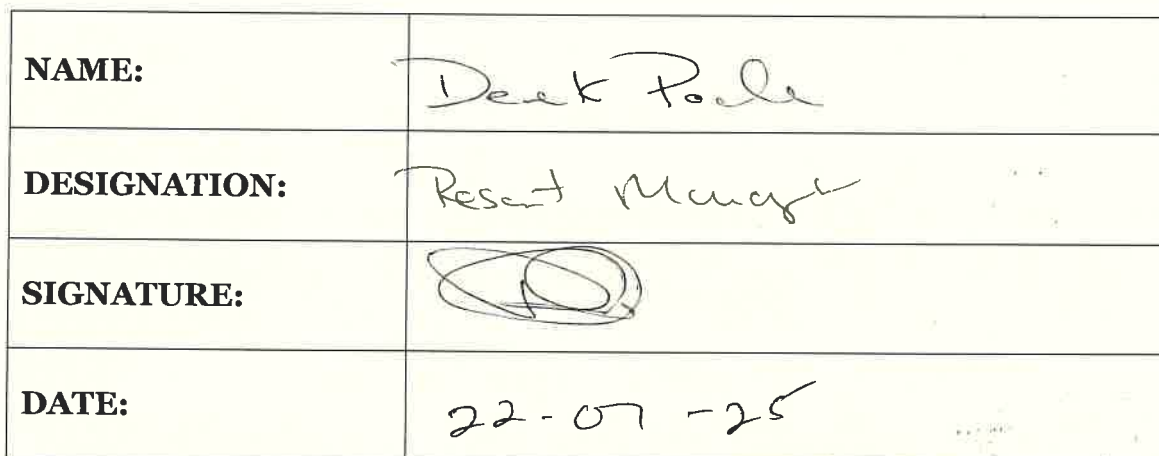 NAME: Derek Poole
DESIGNATION: Resort Manager
SIGNATURE:
DATE: 22-07-25